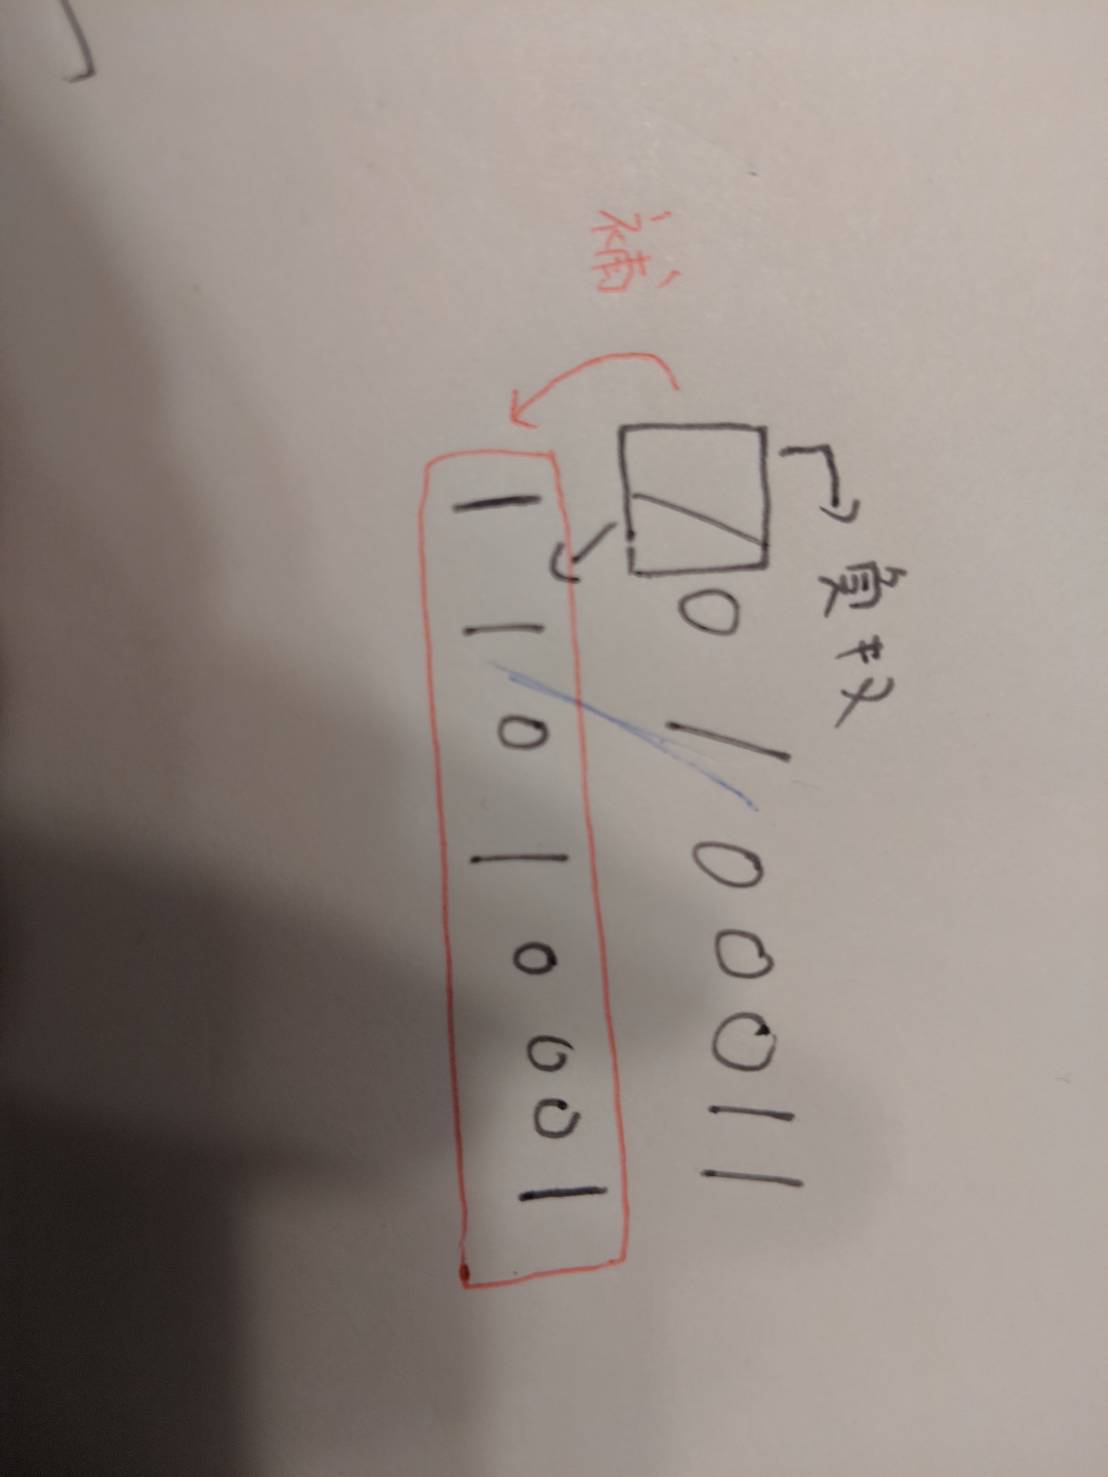 →負数
1 0 1 0 0 0 1 1
補
1 1 0 1 0 0 0 1